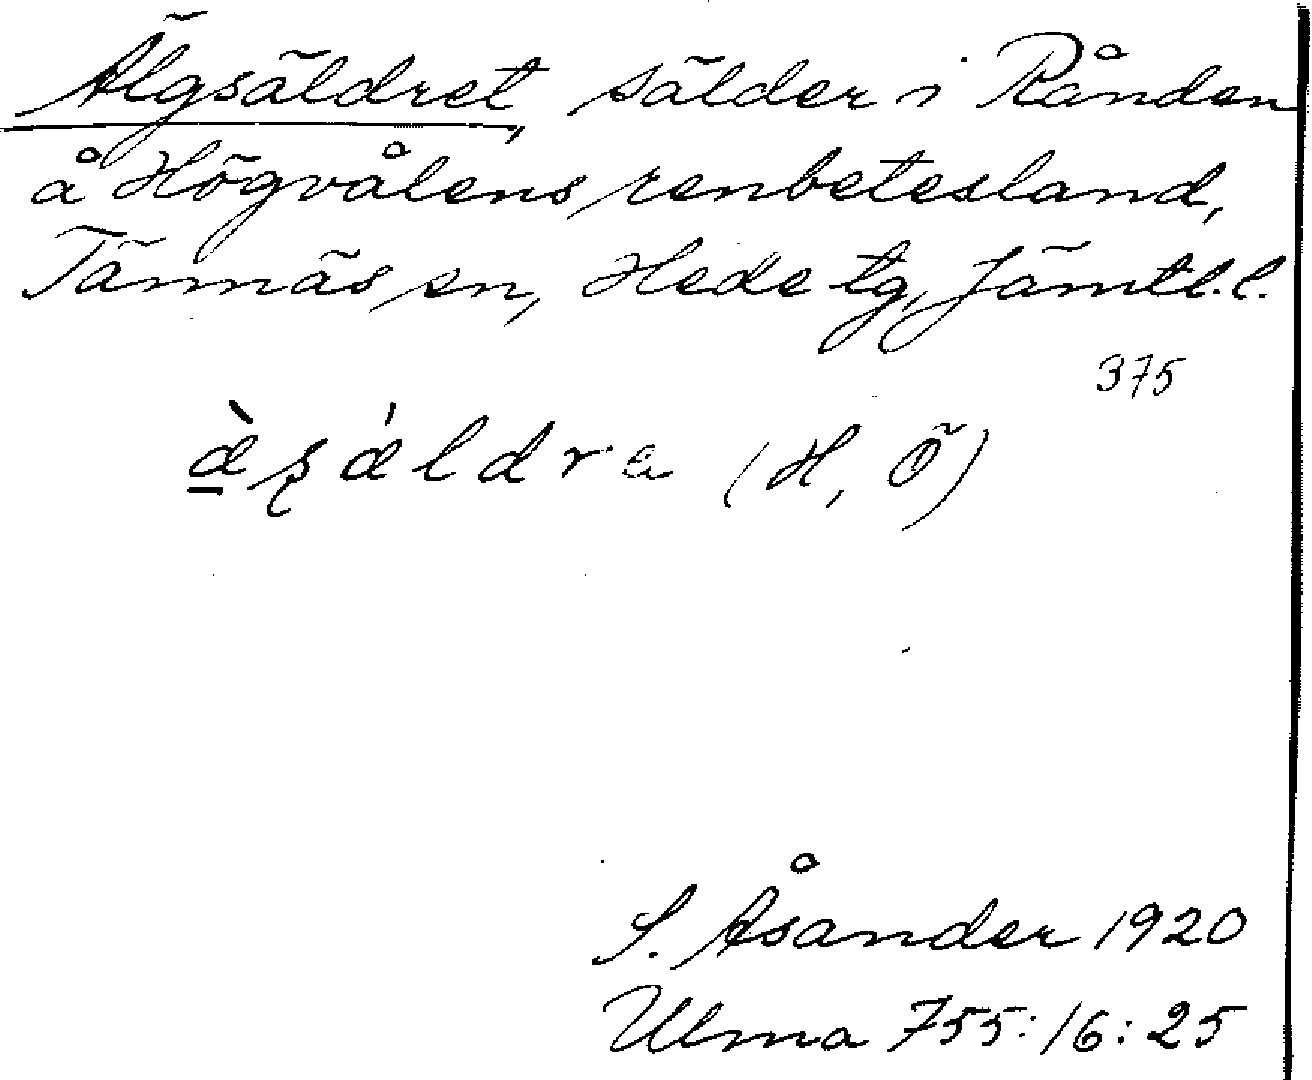 Älgsäldret, sälder i Rånden
å Högvålens renbetesland,
Tännäs sn, Hede tg, Jämtl.l.
375
(H, Ö)
S. Åsander 1920
Ulma 755:16:25